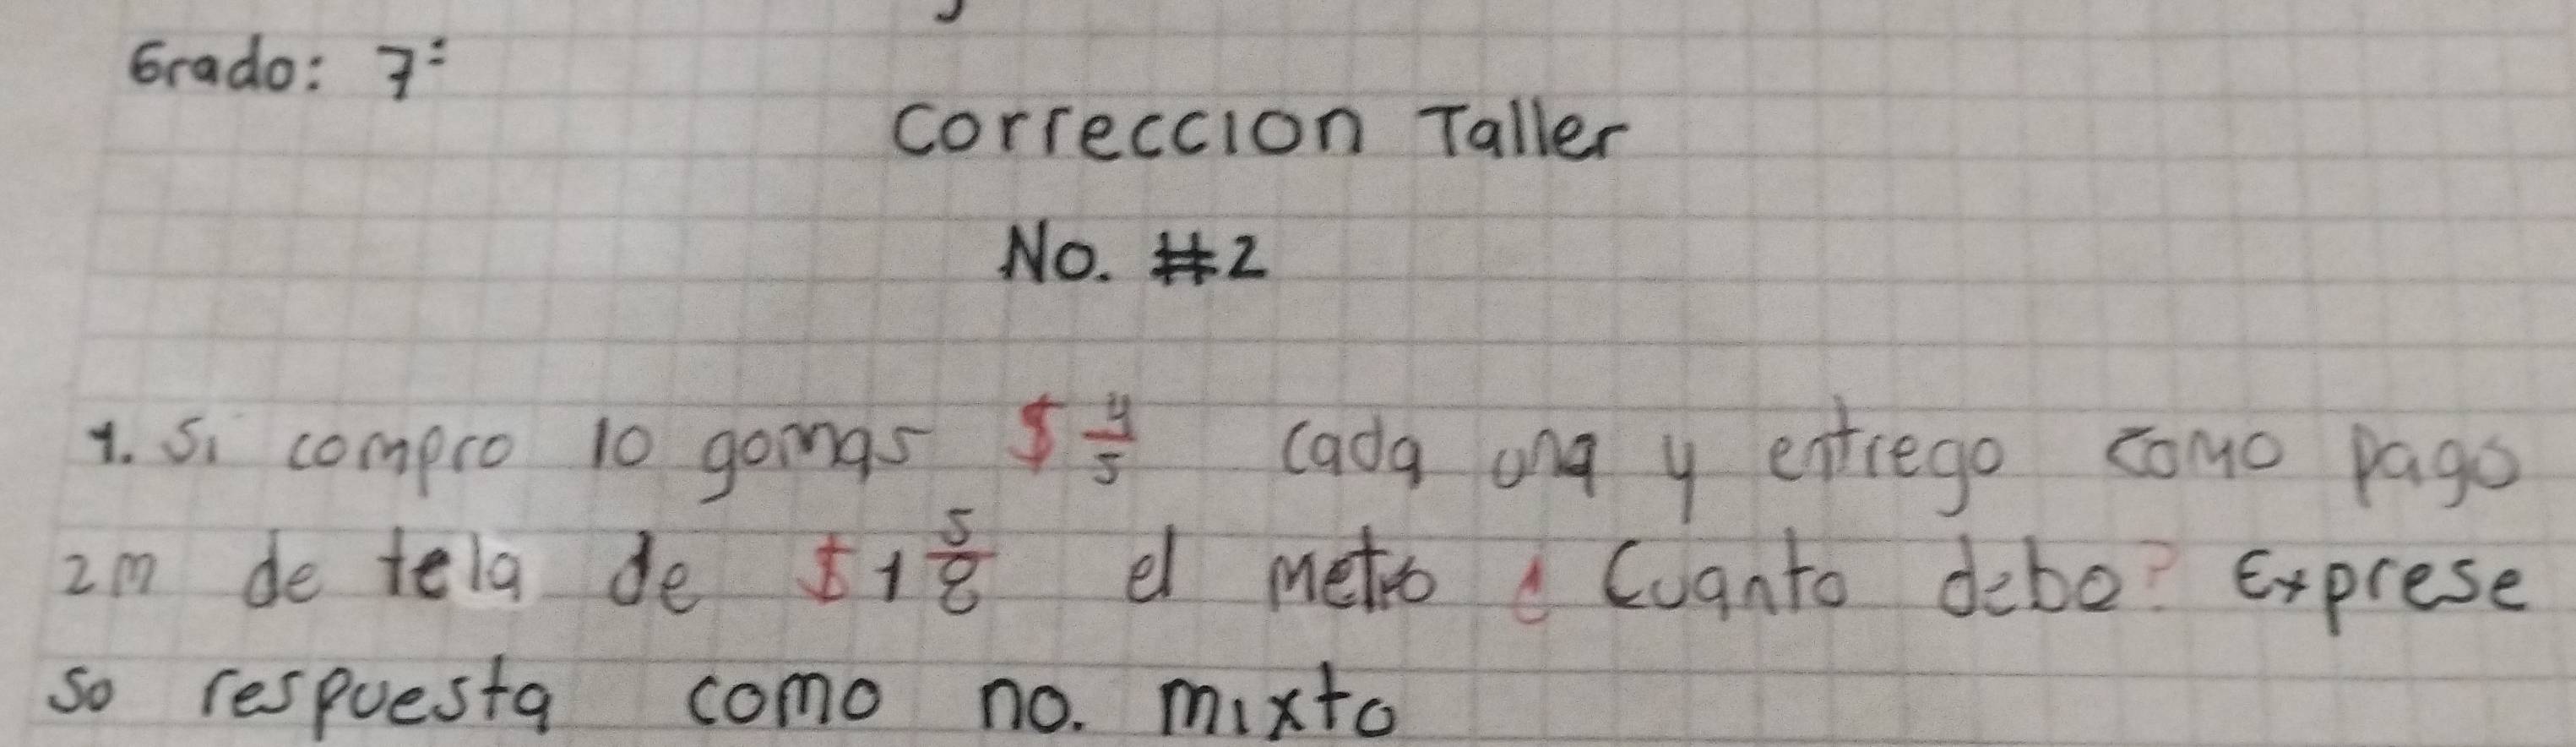 Grado: 7º
Correccion Taller
No. #2
1. Si compro 10 gomas $ 4/5 cada una y entrego como pago
2m de tela de $1 5/8 el metro ¿Cuanto debo? Exprese
so respuesta como no. mixto